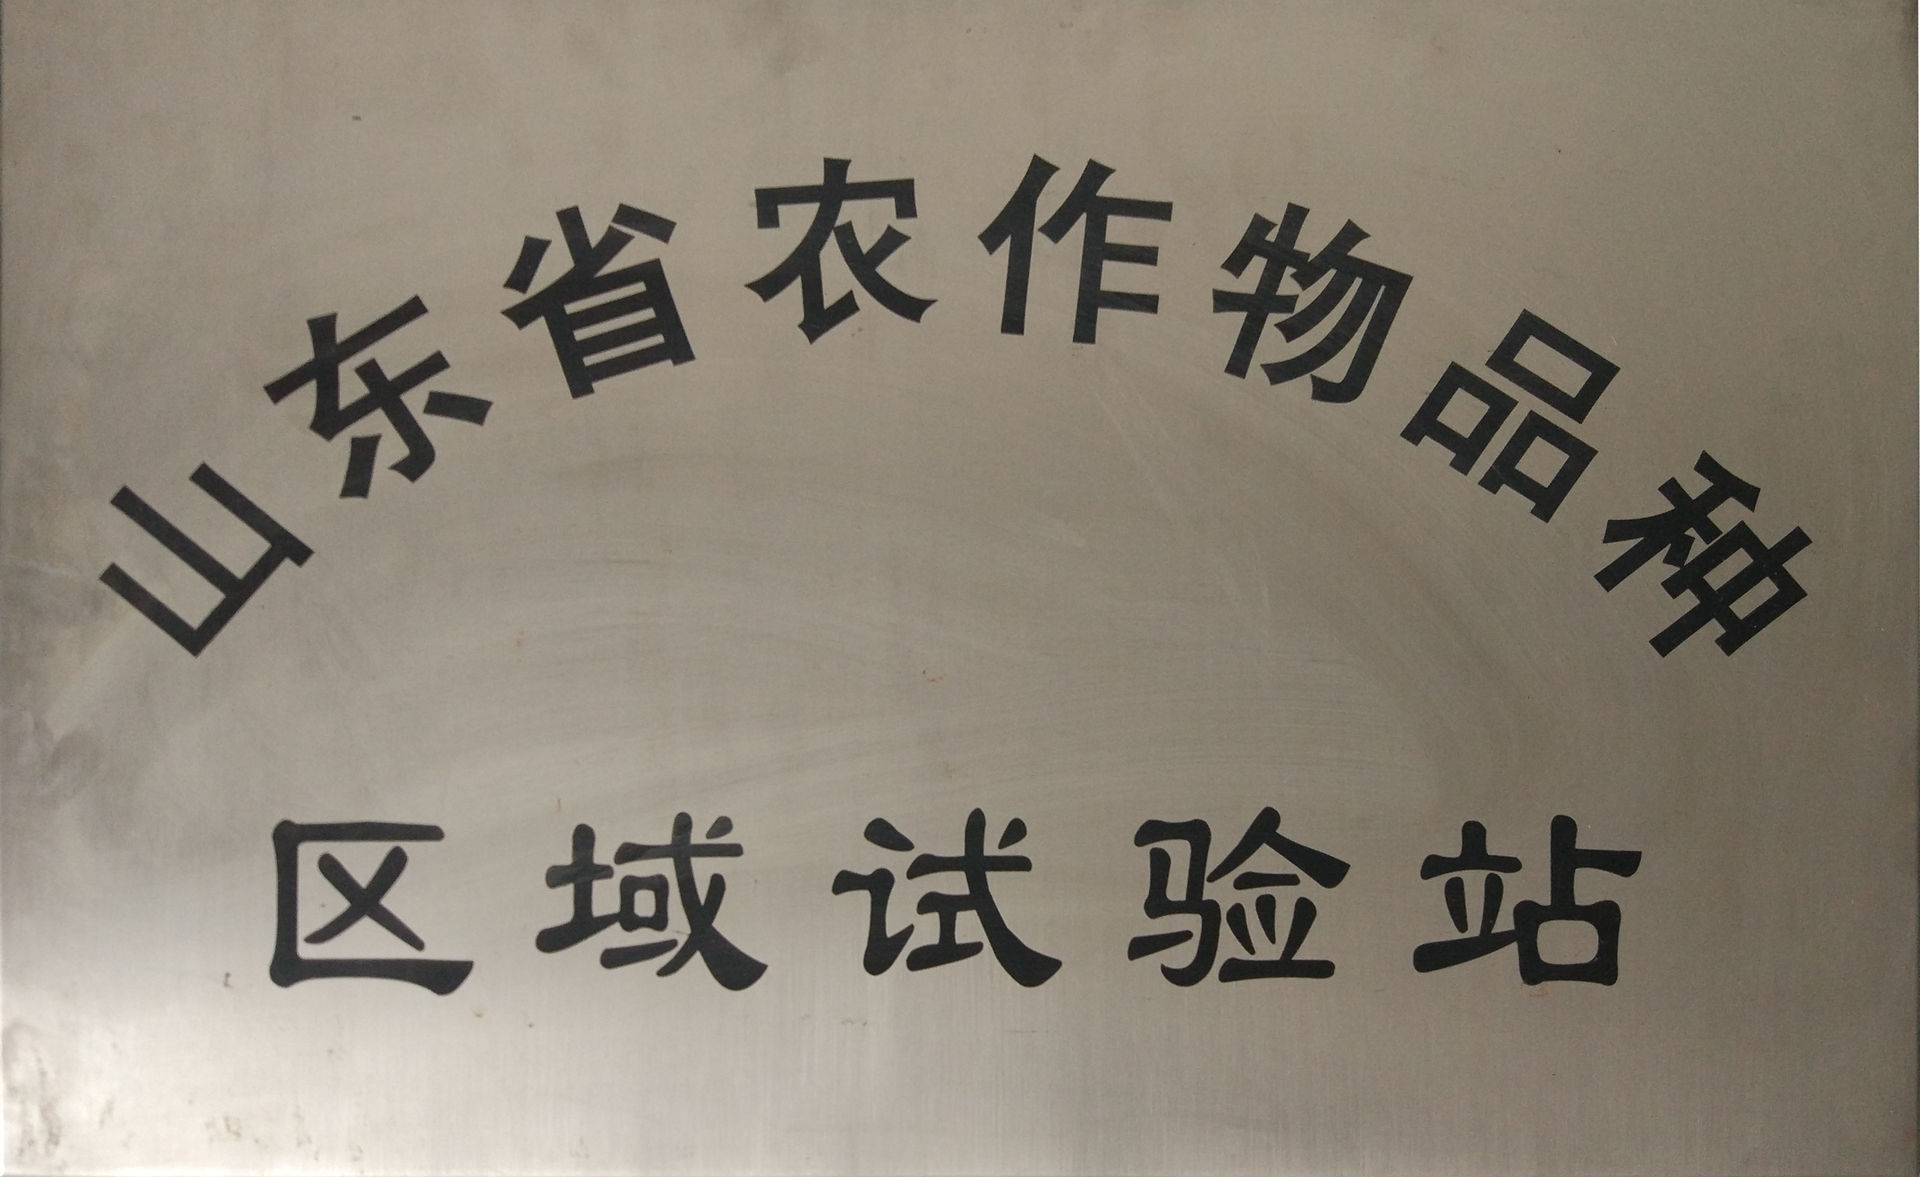 山东省农作物品种
区域试验站